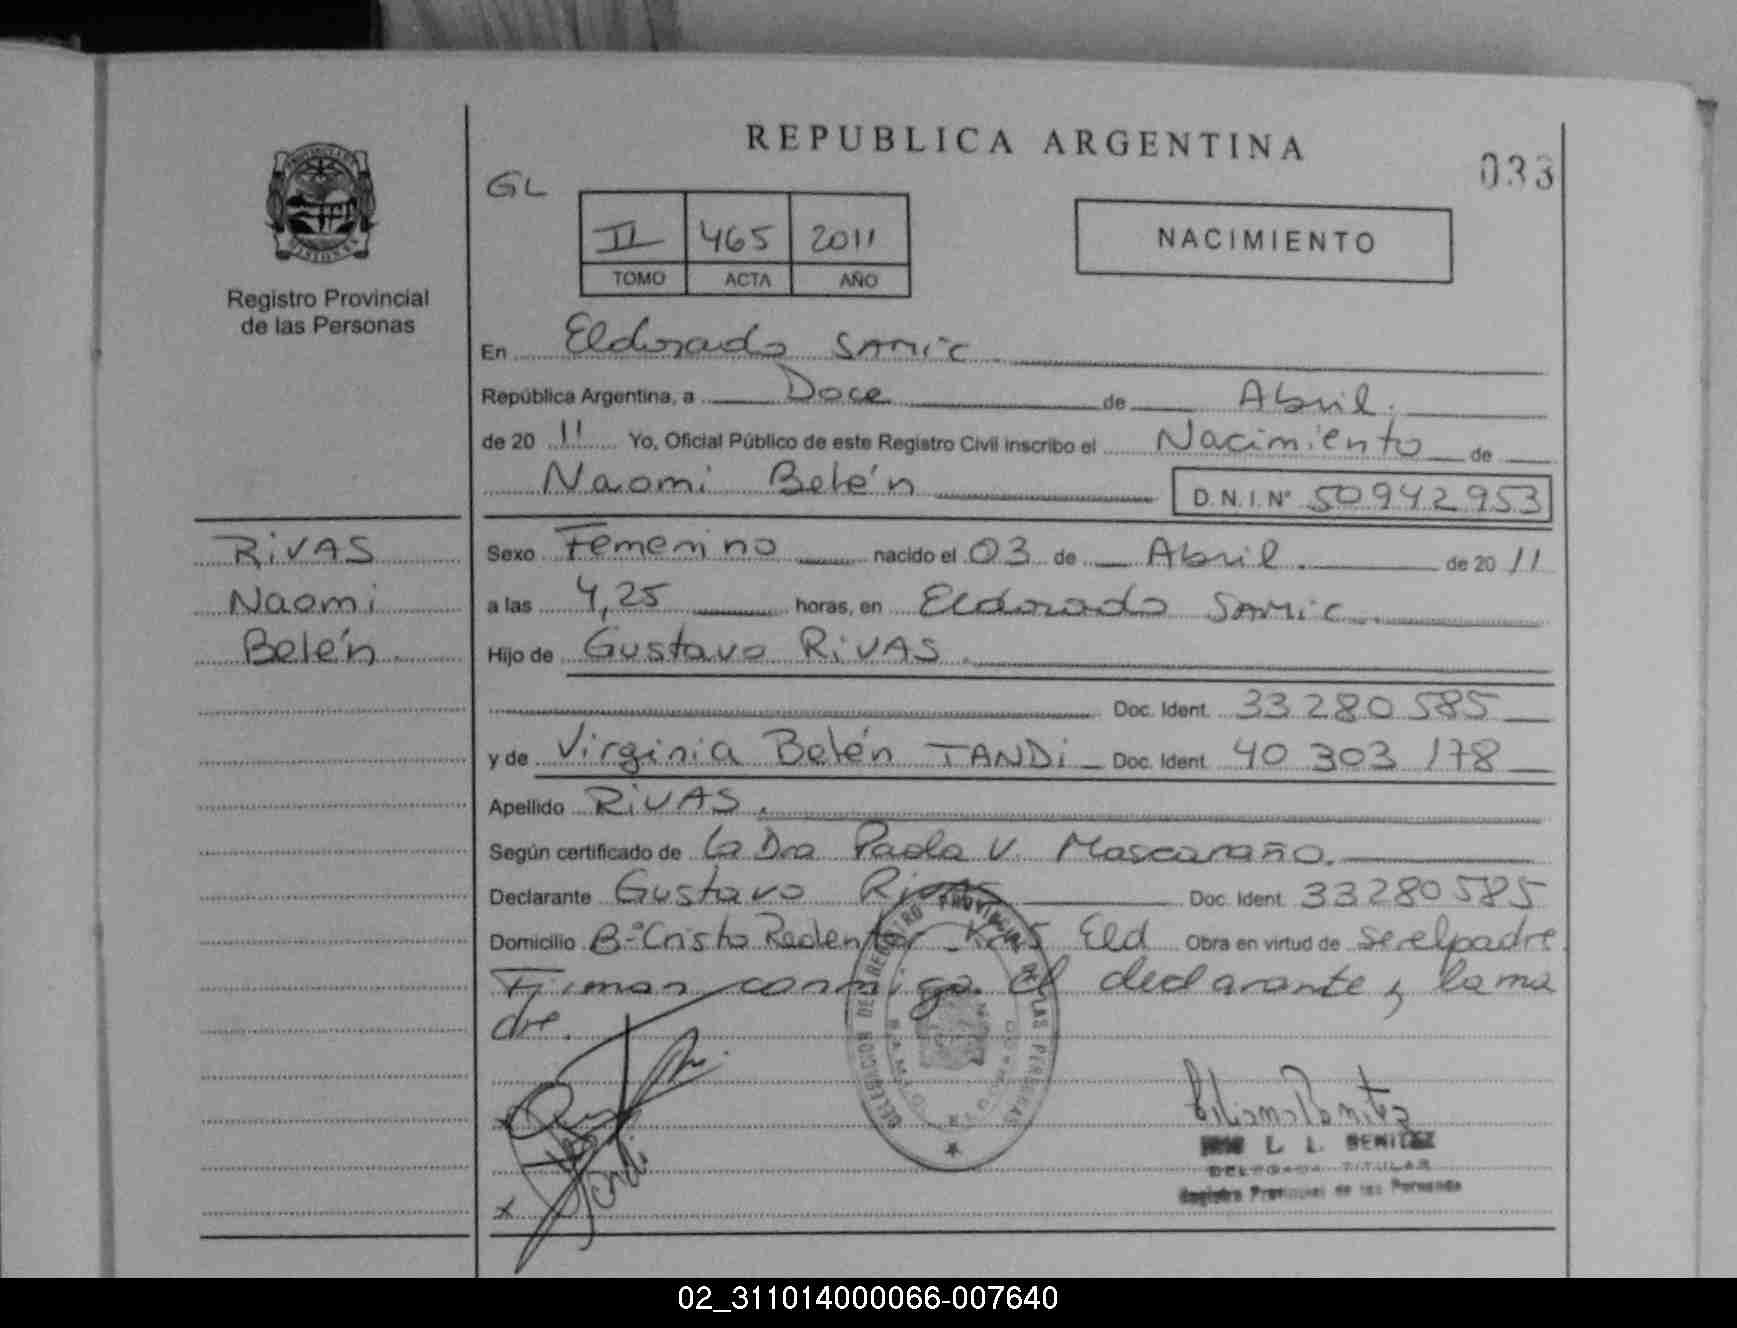 REPUBLICA ARGENTINA
033
GL
II 465 2011
TOMO ACTA AÑO
NACIMIENTO
Registro Provincial
de las Personas
En Eldorado SAMIC
República Argentina, a Doce de Abril.
de 20 11 Yo, Oficial Público de este Registro Civil inscribo el Nacimiento de
Naomi Belén D.N.I.Nº 50942953
RIVAS
Naomi
Belén
Sexo Femenino nacido el 03 de Abril de 20 11
a las 4,25 horas, en Eldorado SAMIC
Hijo de Gustavo RIVAS
Doc. Ident. 33 280 585
y de Virginia Belén TANDI Doc. Ident. 40 303 178
Apellido RIVAS.
Según certificado de La Dra Paola V. Mascaraño.
Declarante Gustavo Rivas Doc. Ident. 33280585
Domicilio Bº Cristo Redentor Eld Obra en virtud de ser el padre
Firman conmigo el declarante y la ma
dre.
DELEGACION DE REGISTRO PROVINCIAL DE LAS PERSONAS
L. L. BENITEZ
DELEGADA TITULAR
Registro Provincial de las Personas
02_311014000066-007640